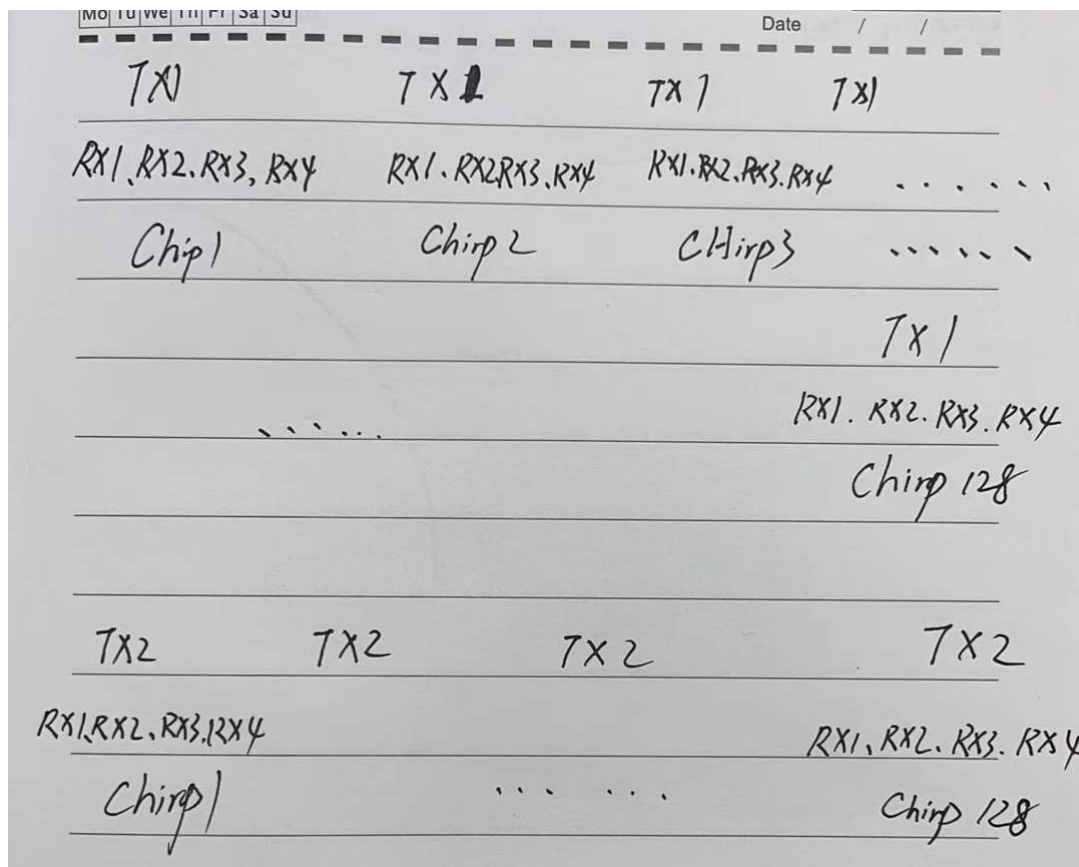 Mo Tu We Th Fr Sa Su
Date / /
TX1 TX1 TX1 TX1
RX1、RX2、RX3、RX4 RX1.RX2RX3.RX4 RX1.RX2.RX3.RX4 ......
Chip1 Chirp2 CHirp3 ......
TX1
...... RX1.RX2.RX3.RX4
Chirp 128
TX2 TX2 TX2 TX2
RX1、RX2、RX3、RX4 RX1、RX2、RX3.RX4
Chirp1 ... ... Chirp 128